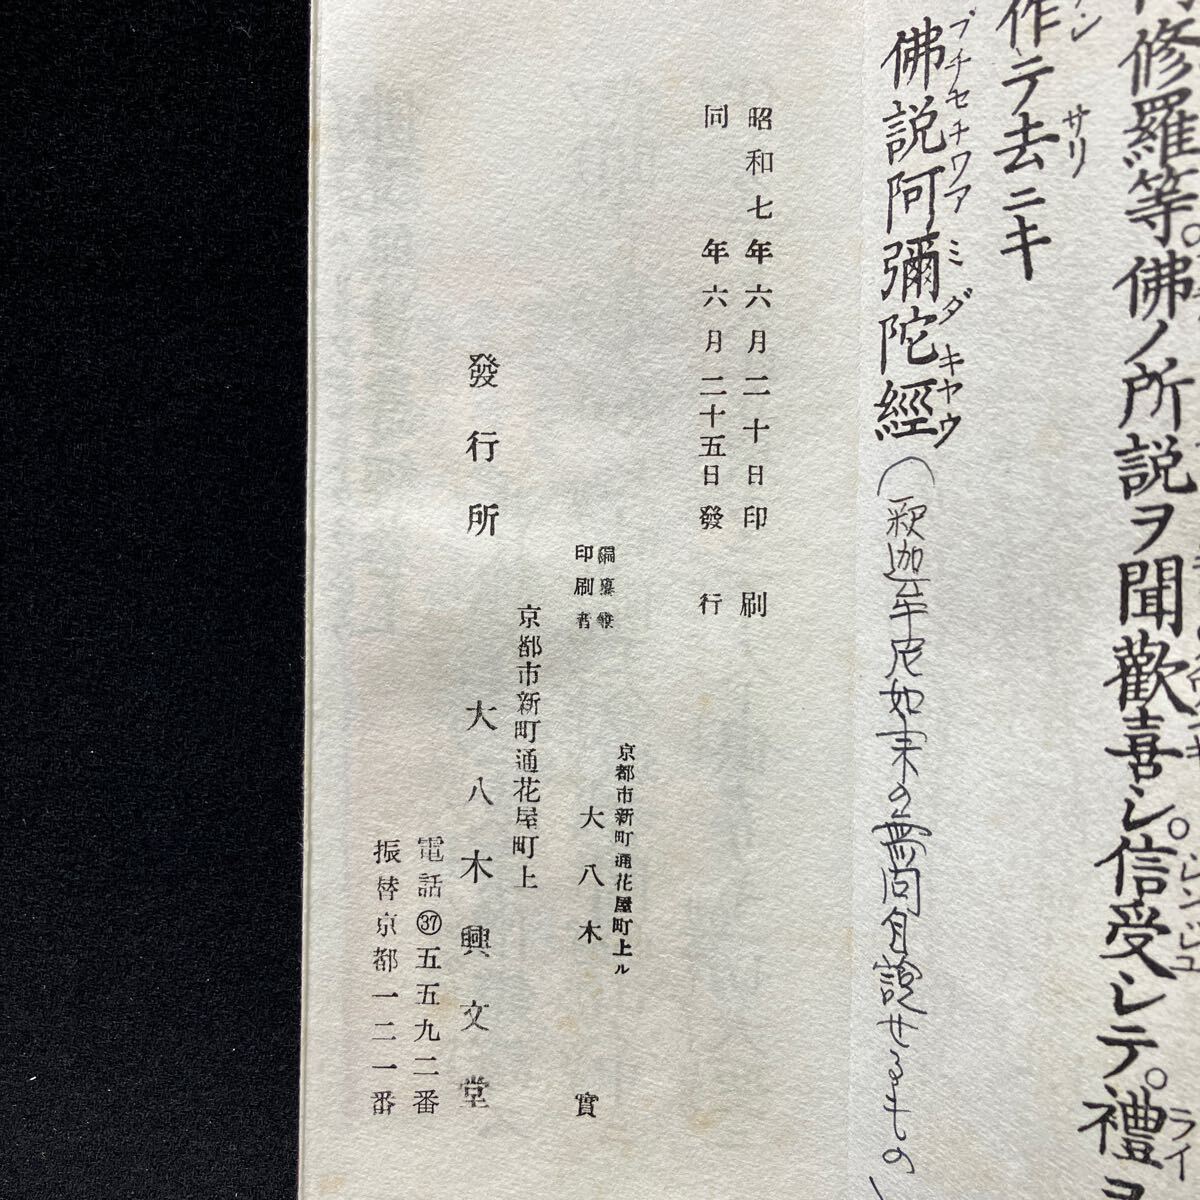 修羅等。佛ノ所説ヲ聞歡喜シ。信受シテ。禮
ライ
作テ去ニキ
サリ
佛説阿彌陀經
ブチセチワアミダキヤウ
(釈迦牟尼如来の無問自説せるもの)
昭和七年六月二十日印刷
同年六月二十五日發行
京都市新町通花屋町上ル
印刷者 大八木實
京都市新町通花屋町上
發行所 大八木興文堂
電話㊲五五九二番
振替京都一二一番